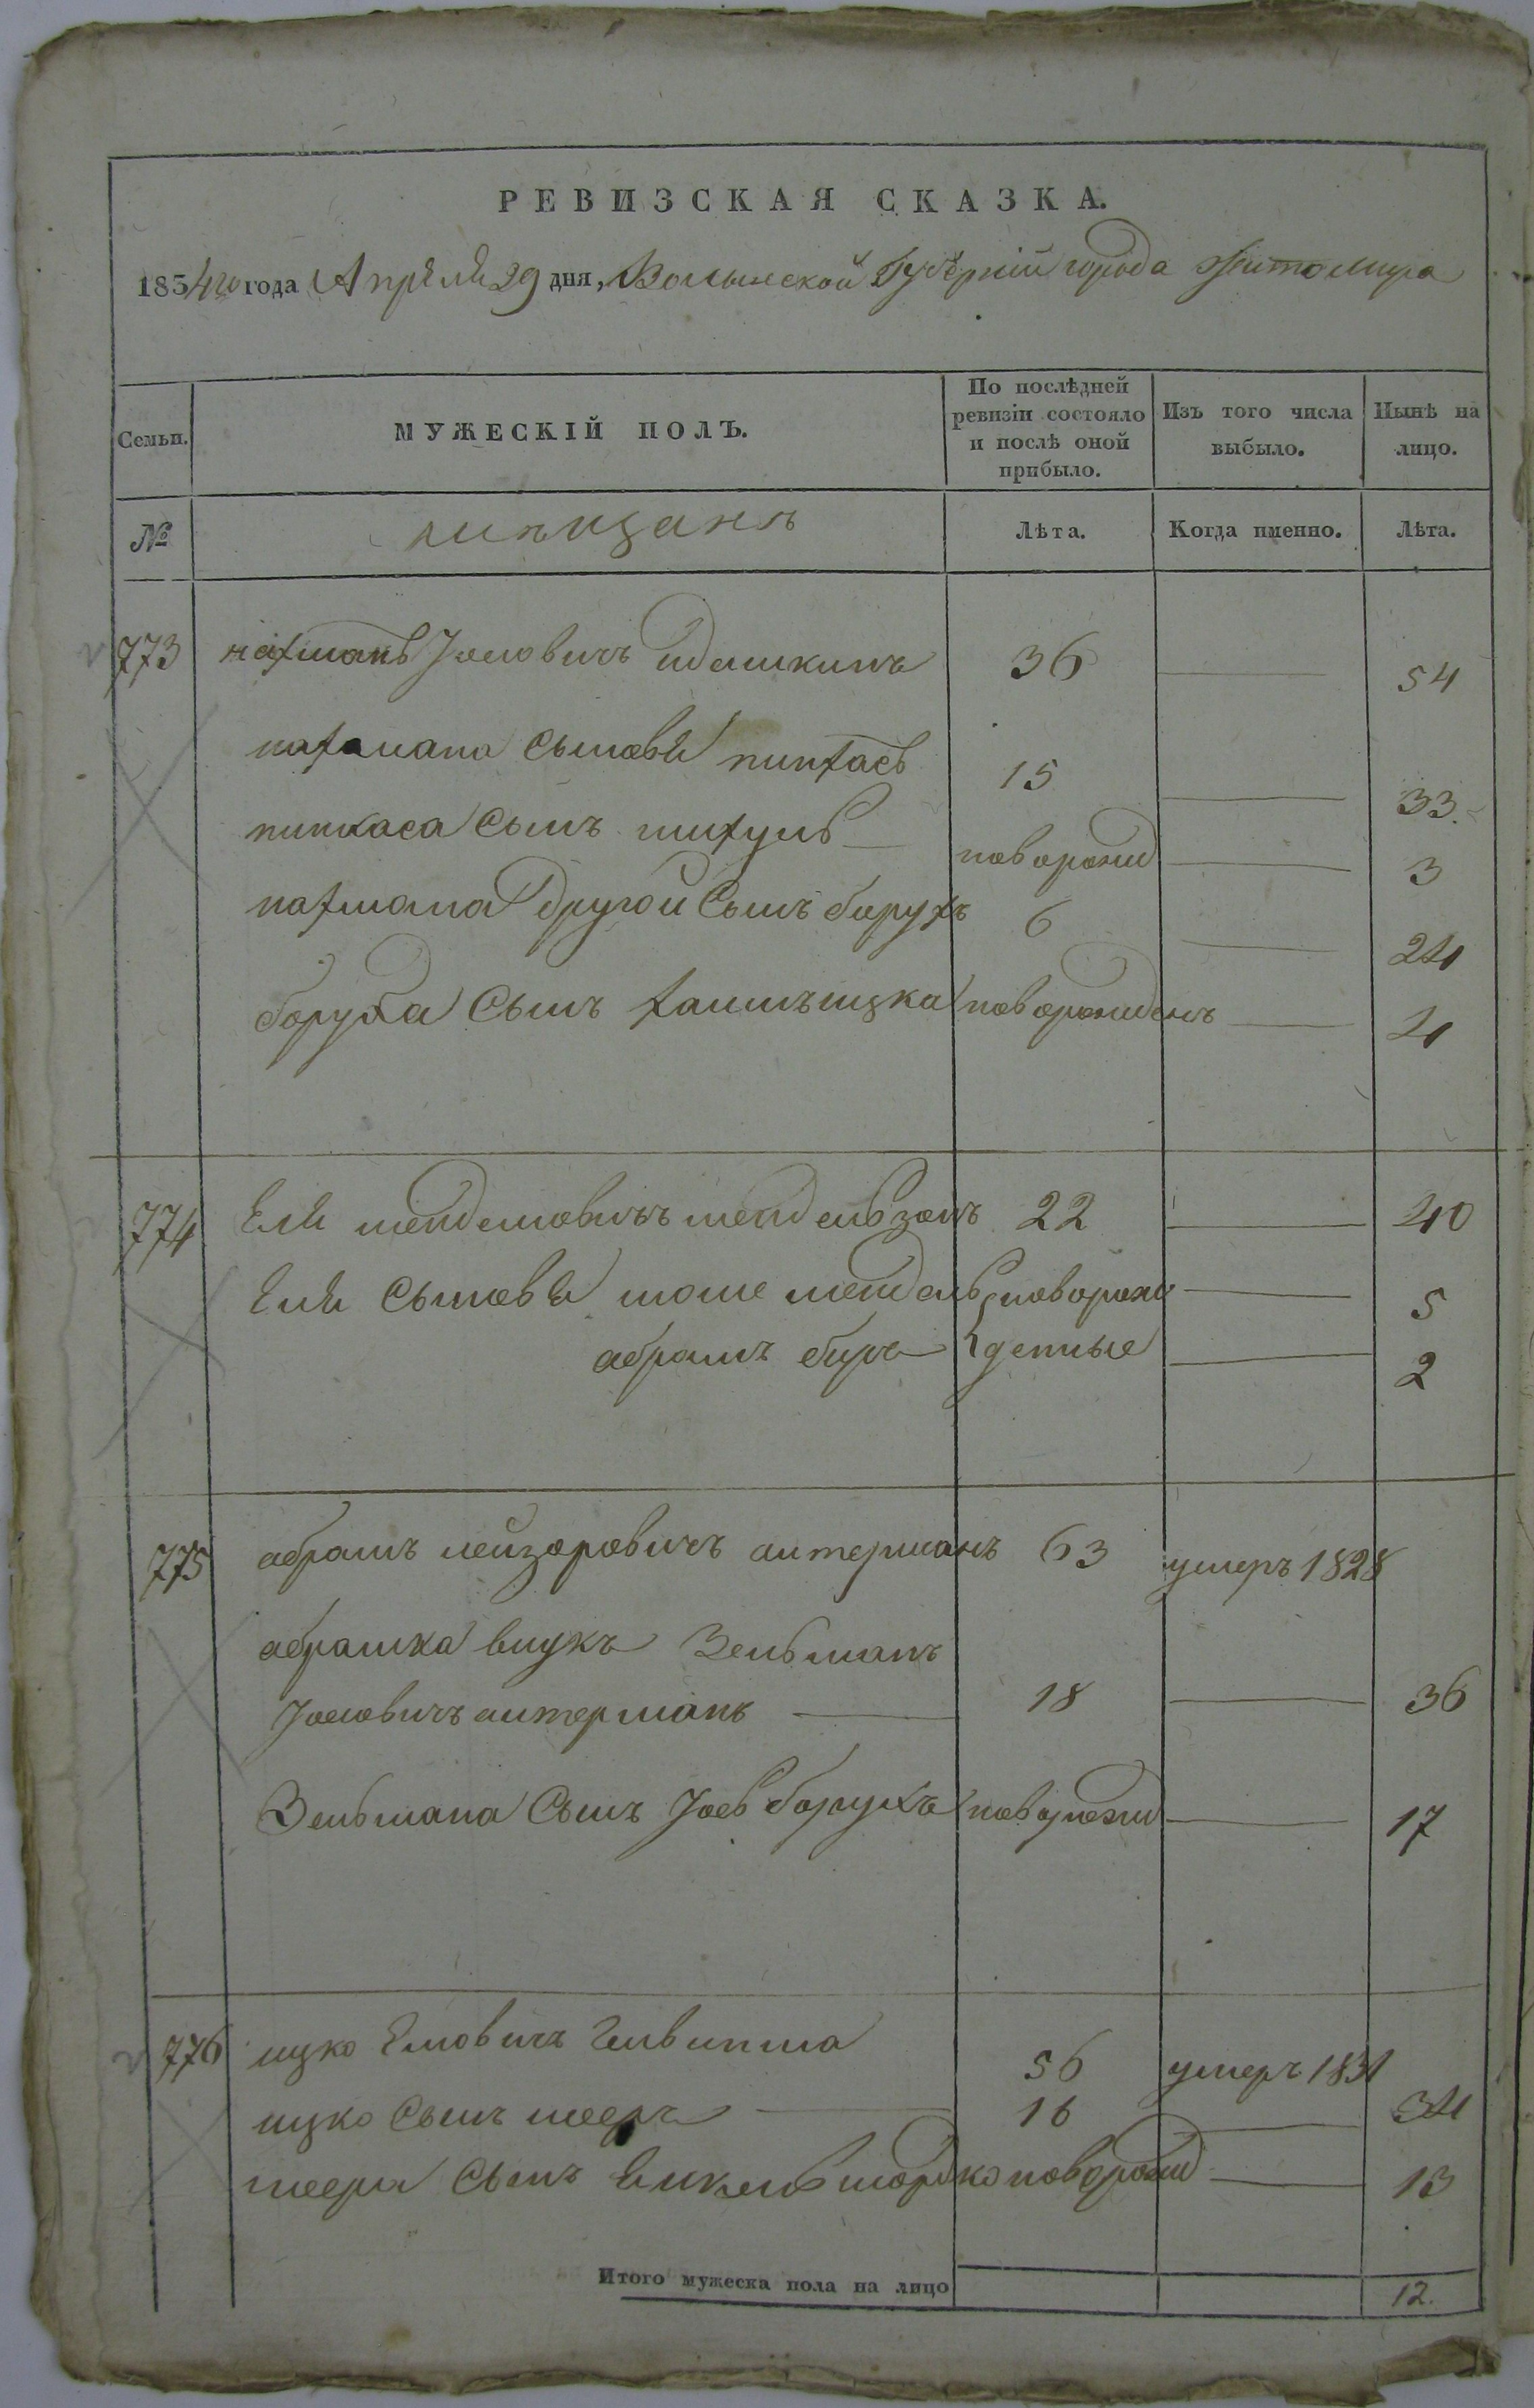 РЕВИЗСКАЯ СКАЗКА.
1834го года Апреля 29 дня, Волынской Губернии города Житомира
Семьи.
МУЖЕСКІЙ ПОЛЪ.
По послѣдней ревизіи состояло и послѣ оной прибыло.
Изъ того числа выбыло.
Нынѣ на лицо.
№
мѣщанъ
Лѣта.
Когда именно.
Лѣта.
773 нахманъ Иосовичъ 36 54
нахмана Сыновья пинхасъ 15 33.
пинкаса Сынъ новорожд 3
нахмана Другой Сынъ борухъ 6 24
боруха Сынъ хаимъ ицка новорожденъ 4
774 Еля менделовичъ мендельзонъ 22 40
Еля Сыновья моше мендель новорож 5
абрамъ беръ денные 2
775 абрамъ лейзоровичъ антерманъ 63 умеръ 1828
абрамка внукъ Зельманъ
Иосовичъ антерманъ 18 36
Зельмана Сынъ Иось борухъ новорожд 17
776 ицко Елевичъ 56 умеръ 1831
ицко Сынъ мееръ 16 34
меера Сынъ новорожд 13
Итого мужеска пола на лицо 12.